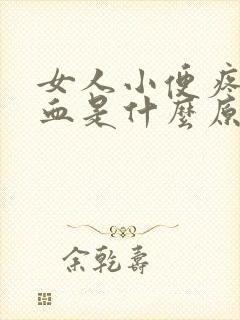 女人小便疼
血是什麼原
余乾壽